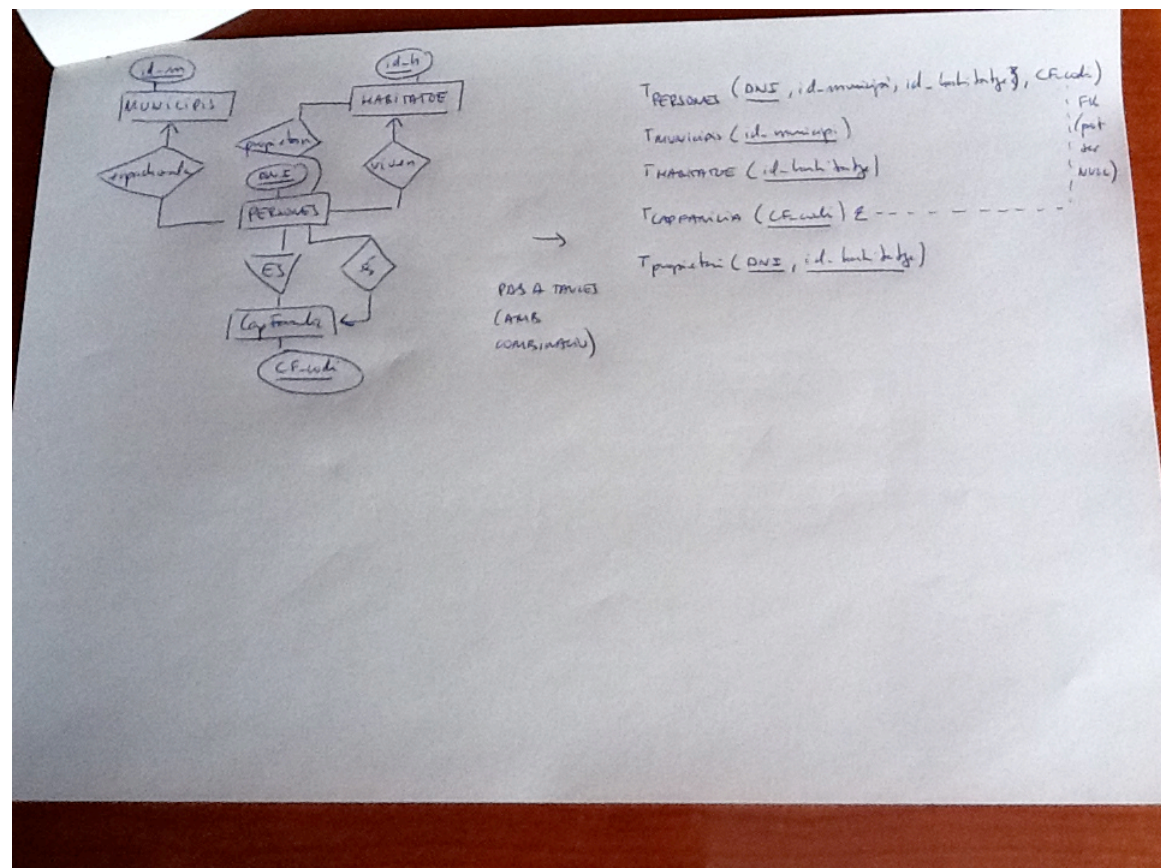 id-m
MUNICIPIS
id-h
HABITATGE
propietari
viuen
DNI
PERSONES
ES
és
CapFamilia
CF-codi
→
PAS A TAULES
(AMB
COMBINACIÓ)
TPERSONES (DNI, id-municipi, id-habitatge}, CF-codi)
FK
(pot
ser
NULL)
TMUNICIPIS (id-municipi)
THABITATGE (id-habitatge)
TCAPFAMILIA (CF-codi)
Tpropietari (DNI, id-habitatge)